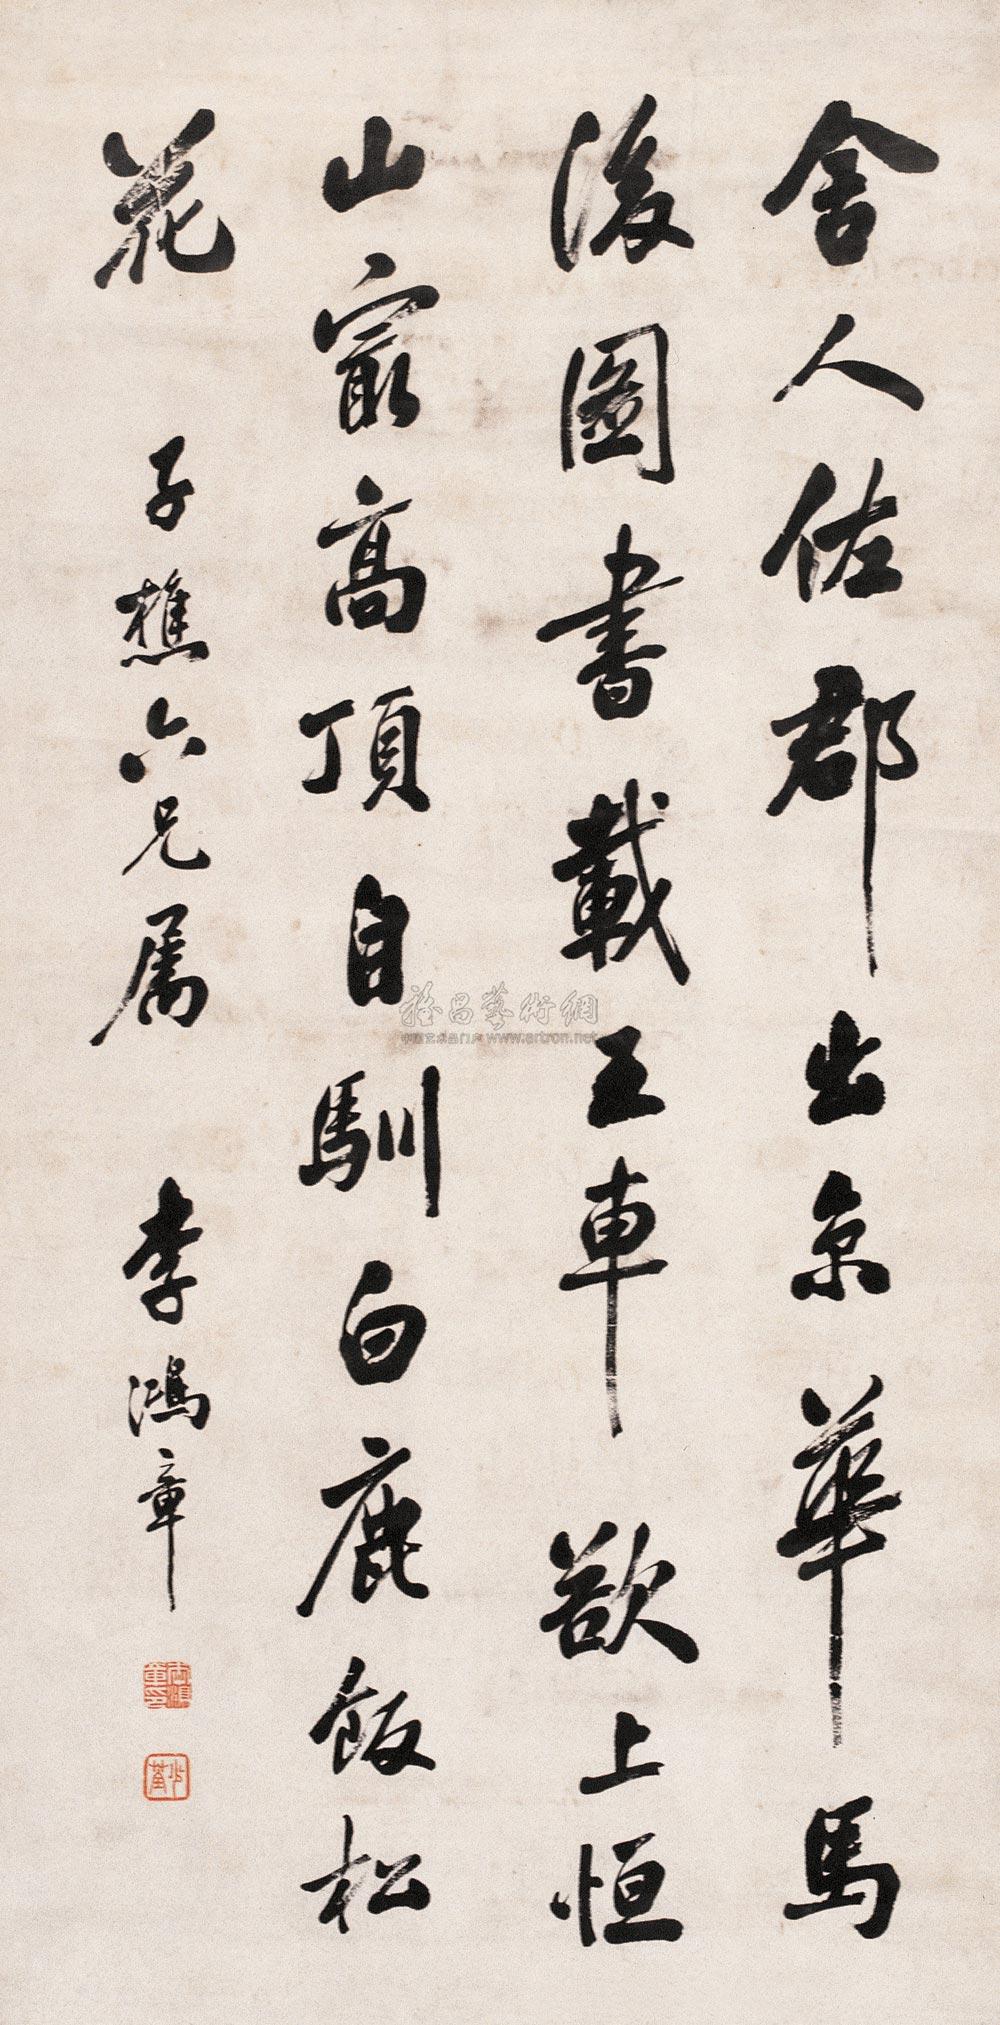 舍人佐郡出京華馬
後圖書載五車欲上恒
山最高頂自馴白鹿飯松
花
子樵六兄属
李鴻章
雅昌藝術網
www.artron.net